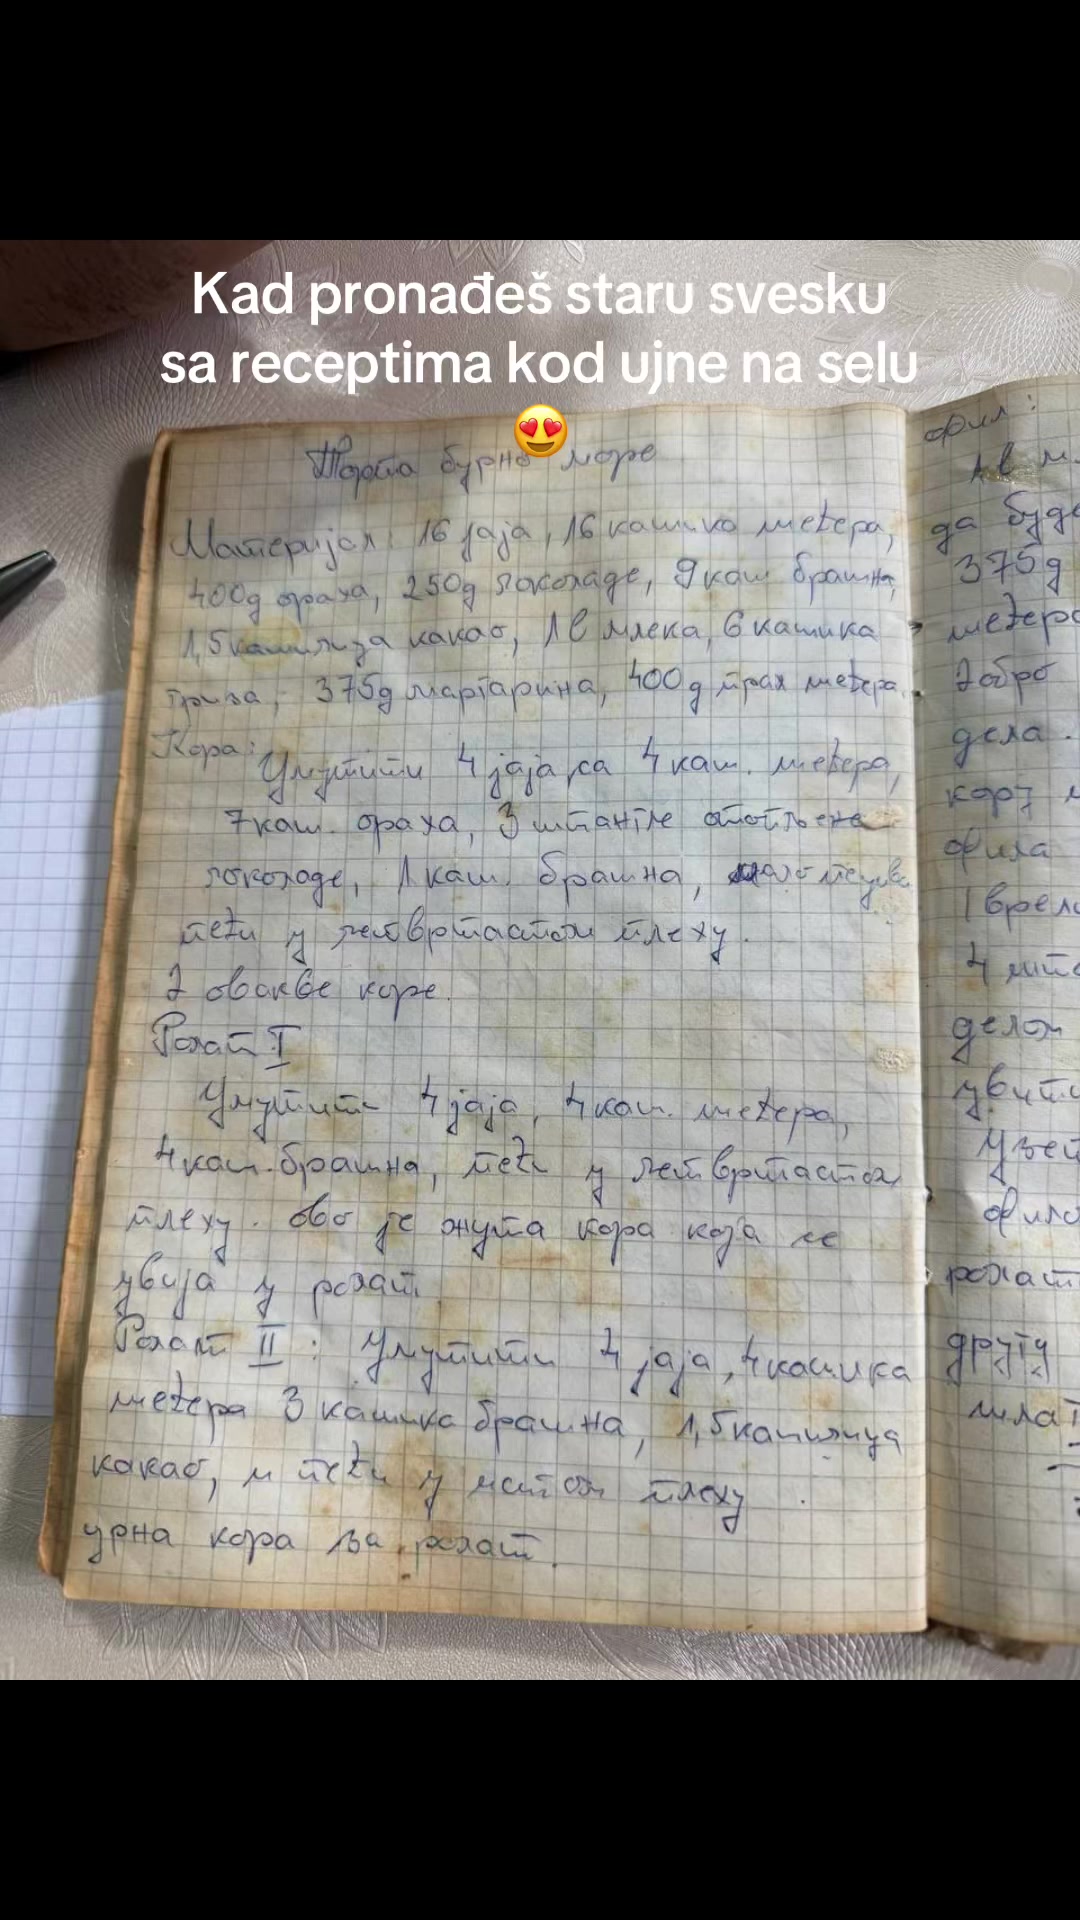 Kad pronađeš staru svesku
sa receptima kod ujne na selu
😍
Торта бурно море
Материјал: 16 јаја, 16 кашика шећера,
400g ораха, 250g чоколаде, 9 каш брашна,
1,5 кашичица какао, 1l млека, 6 кашика
гриза, 375g маргарина, 400g прах шећера.
Кора:
Умутити 4 јаја са 4 каш. шећера,
7 каш. ораха, 3 штангле отопљене
чоколаде, 1 каш. брашна,
пећи у четвртастом плеху.
2 овакве коре.
Ролат I
Умутити 4 јаја, 4 каш. шећера,
4 каш. брашна, пећи у четвртастом
плеху. Ово је жута кора која се
увија у ролат.
Ролат II: Умутити 4 јаја, 4 кашика
шећера 3 кашика брашна, 1,5 кашичица
какао, и пећи у истом плеху.
црна кора за ролат.
фил:
1l
да буде
375g
шећера
добро
дела.
кору
фила
1
4
делом
увити
филом
ролат
другу